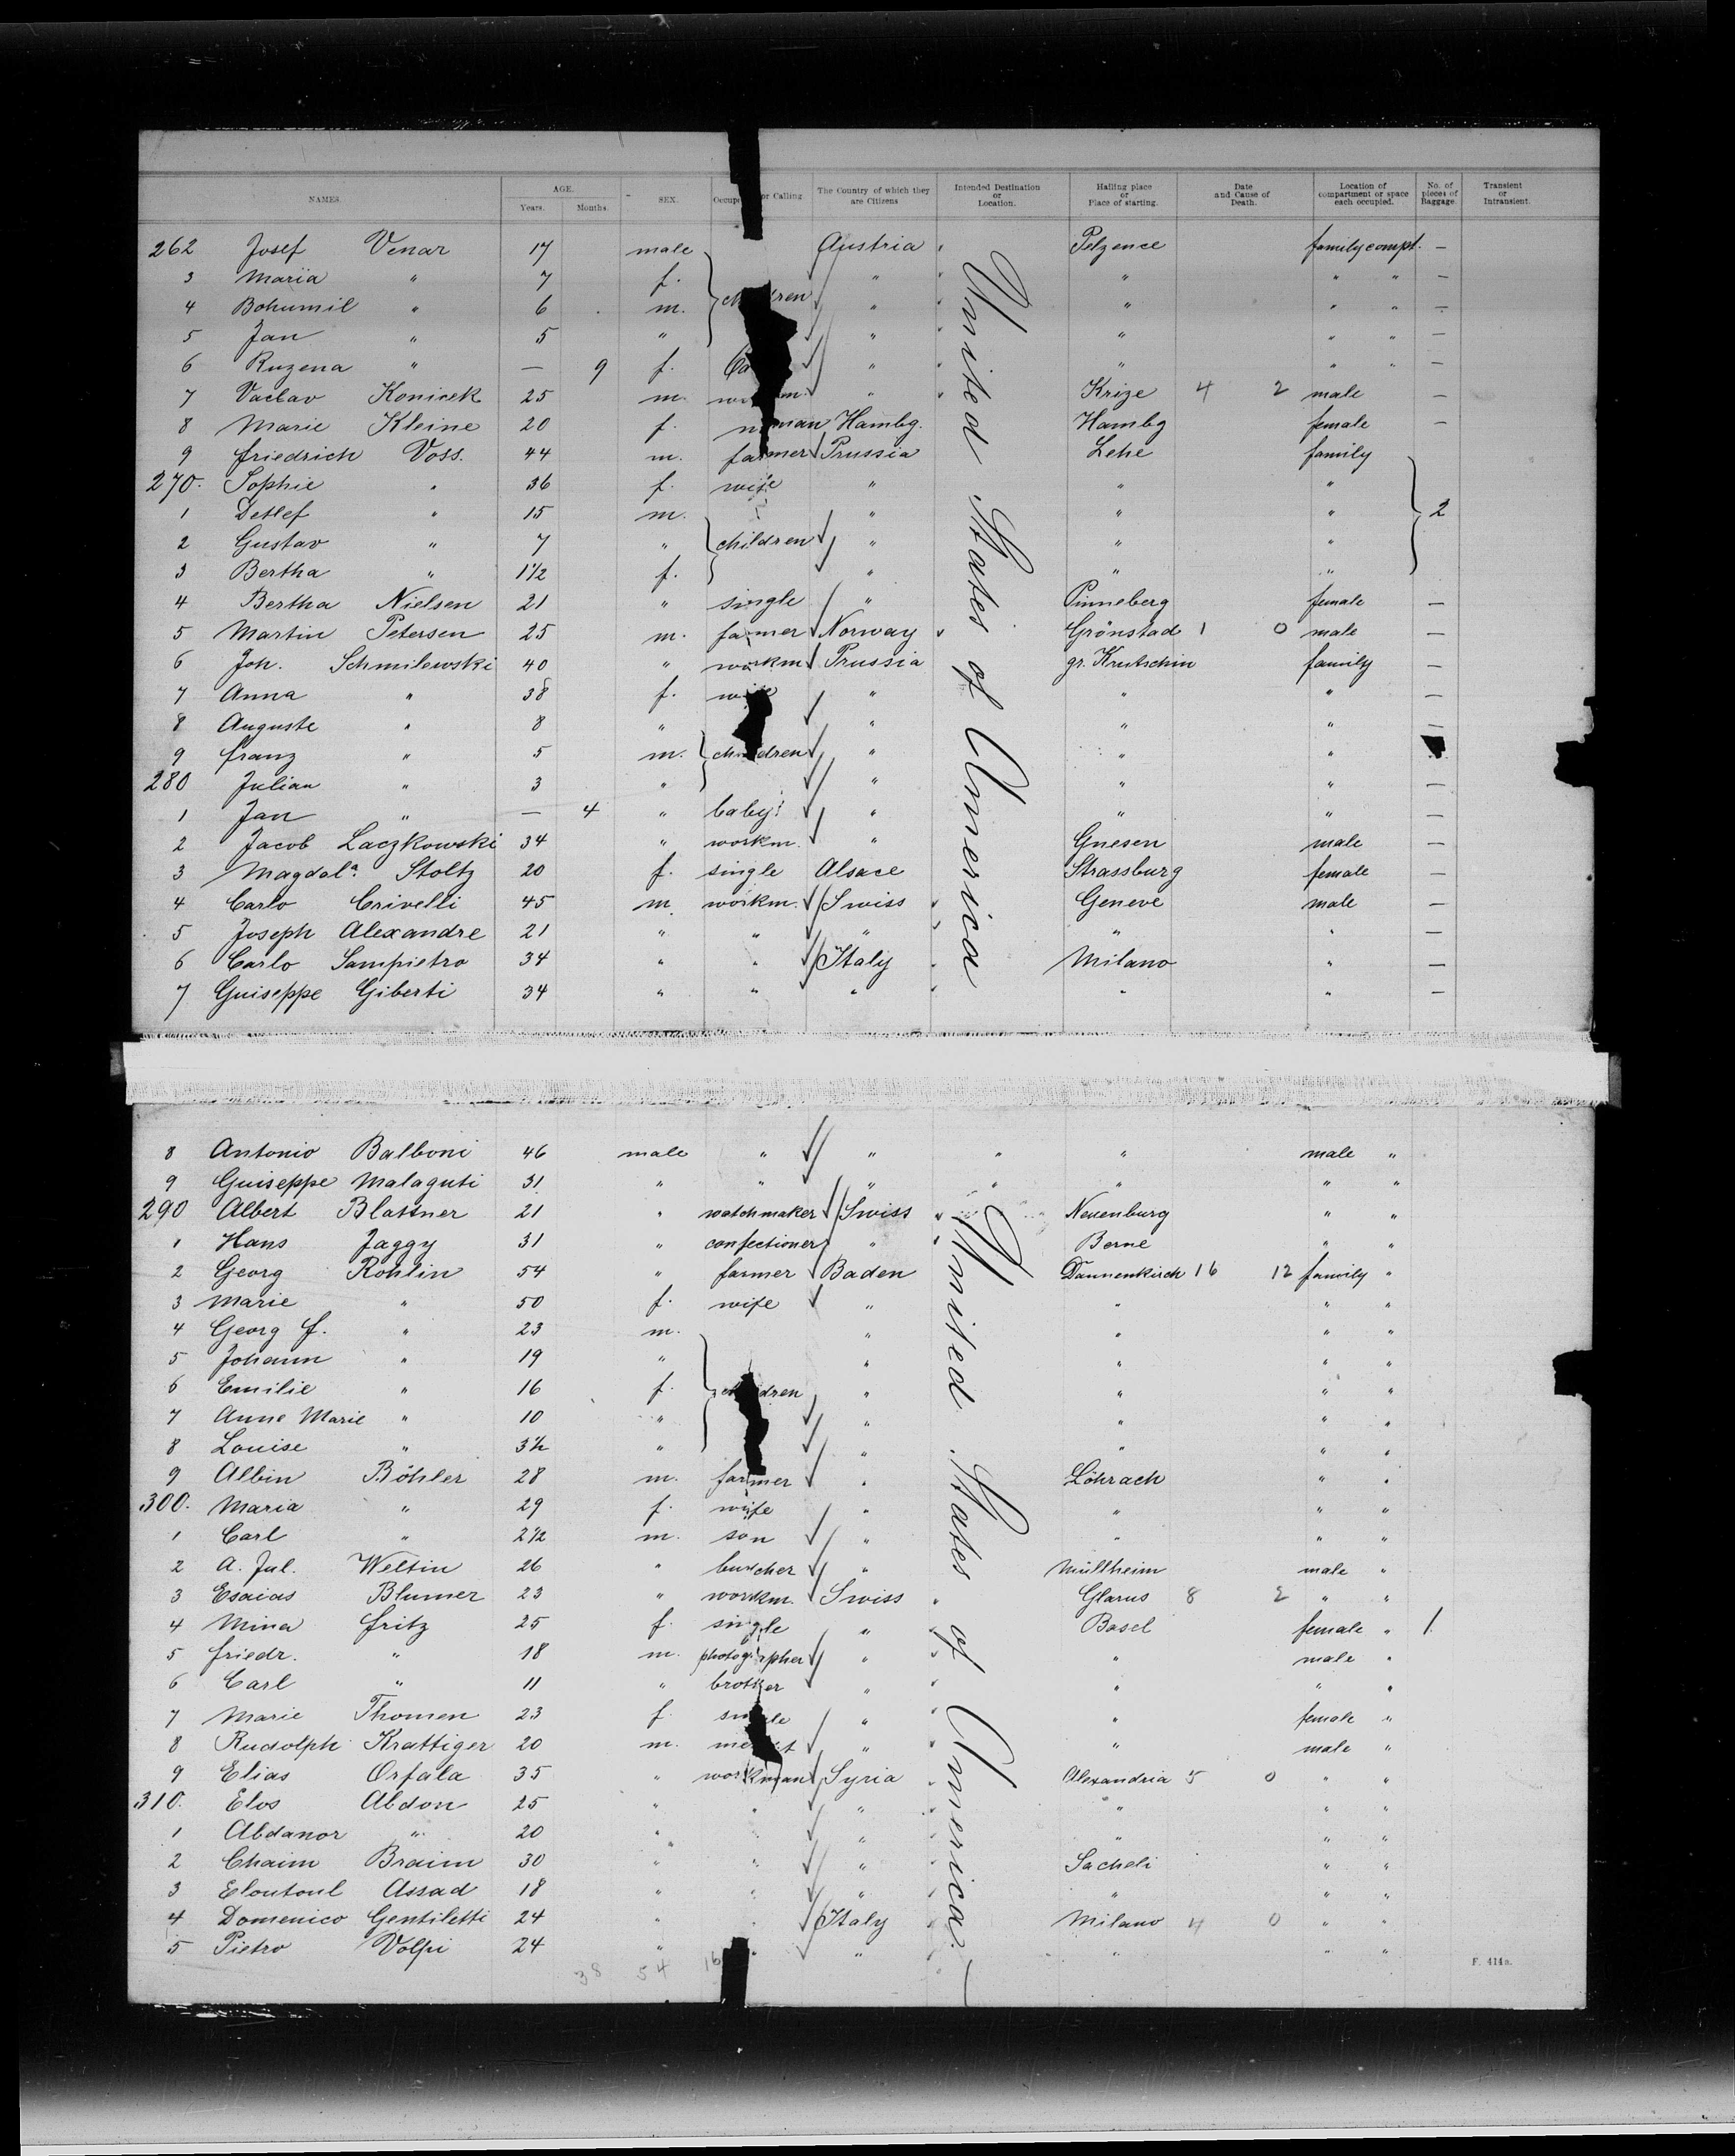 NAMES. AGE. Years. Months. SEX. Occup or Calling The Country of which they are Citizens Intended Destination or Location. Hailing place or Place of starting. Date and Cause of Death. Location of compartment or space each occupied. No. of pieces of Baggage. Transient or Intransient.
262 Josef Venar 17 male Austria " Pelzence family compt. —
3 Maria " 7 f. " " " " " —
4 Bohumil " 6 m. children " " " " " —
5 Jan " 5 " " " " " " —
6 Ruzena " — 9 f. " " " " " —
7 Vaclav Konicek 25 m. " " Krize 4 2 male —
8 Marie Kleine 20 f. Hambg. Hambg female —
9 friedrich Voss. 44 m. farmer Prussia Lehe family
270. Sophie " 36 f. wife " " "
1 Detlef " 15 m. " " " 2
2 Gustav " 7 " children " " "
3 Bertha " 1 1/2 f. " " "
4 Bertha Nielsen 21 " single " Pinneberg female —
5 Martin Petersen 25 m. farmer Norway " Grönstad 1 0 male —
6 Joh. Schmilewski 40 " workm Prussia gr. Krutschin family —
7 Anna " 38 f. wife " " " —
8 Auguste " 8 " " " " —
9 franz " 5 m. children " " "
280 Julian " 3 " " " " —
1 Jan " — 4 " baby " " " —
2 Jacob Laczkowski 34 " workm. " Gnesen male —
3 Magdala. Stoltz 20 f. single Alsace Strassburg female —
4 Carlo Crivelli 45 m. workm. Swiss " Geneve male —
5 Joseph Alexandre 21 " " " " " " —
6 Carlo Sampietro 34 " " Italy " Milano " —
7 Guiseppe Giberti 34 " " " " " " —
United States of America
8 Antonio Balboni 46 male " " " " male "
9 Guiseppe Malaguti 31 " " " " " " "
290 Albert Blattner 21 " watchmaker Swiss " Neuenburg " "
1 Hans Jaggy 31 " confectioner " " Berne " "
2 Georg Rohlin 54 " farmer Baden Dannenkirch 16 12 family "
3 Marie " 50 f. wife " " " "
4 Georg f. " 23 m. " " " "
5 Johann " 19 " " " " "
6 Emilie " 16 f. children " " " "
7 Anna Marie " 10 " " " " "
8 Louise " 3 1/2 " " " " "
9 Albin Böhler 28 m. farmer " Löhrach " "
300. Maria " 29 f. wife " " " "
1 Carl " 2 1/2 m. son " " " "
2 A. Jul. Weltin 26 " butcher " Müllheim male "
3 Esaias Blumer 23 " workm. Swiss " Glarus 8 2 " "
4 Mina fritz 25 f. single " " Basel female " 1
5 friedr. " 18 m. photographer " " " male "
6 Carl " 11 " brother " " " " "
7 Marie Thomen 23 f. single " " " female "
8 Rudolph Krattiger 20 m. " " " male "
9 Elias Orfala 35 " workman Syria " Alexandria 5 0 " "
310. Elos Abdon 25 " " " " " " "
1 Abdanor " 20 " " " " " " "
2 Chaim Braim 30 " " " " Sacheli " "
3 Eloutoul Assad 18 " " " " " " "
4 Domenico Gentiletti 24 " " Italy " Milano 4 0 " "
5 Pietro Volpi 24 " " " " " " "
United States of America.
38 54 16
F. 414a.